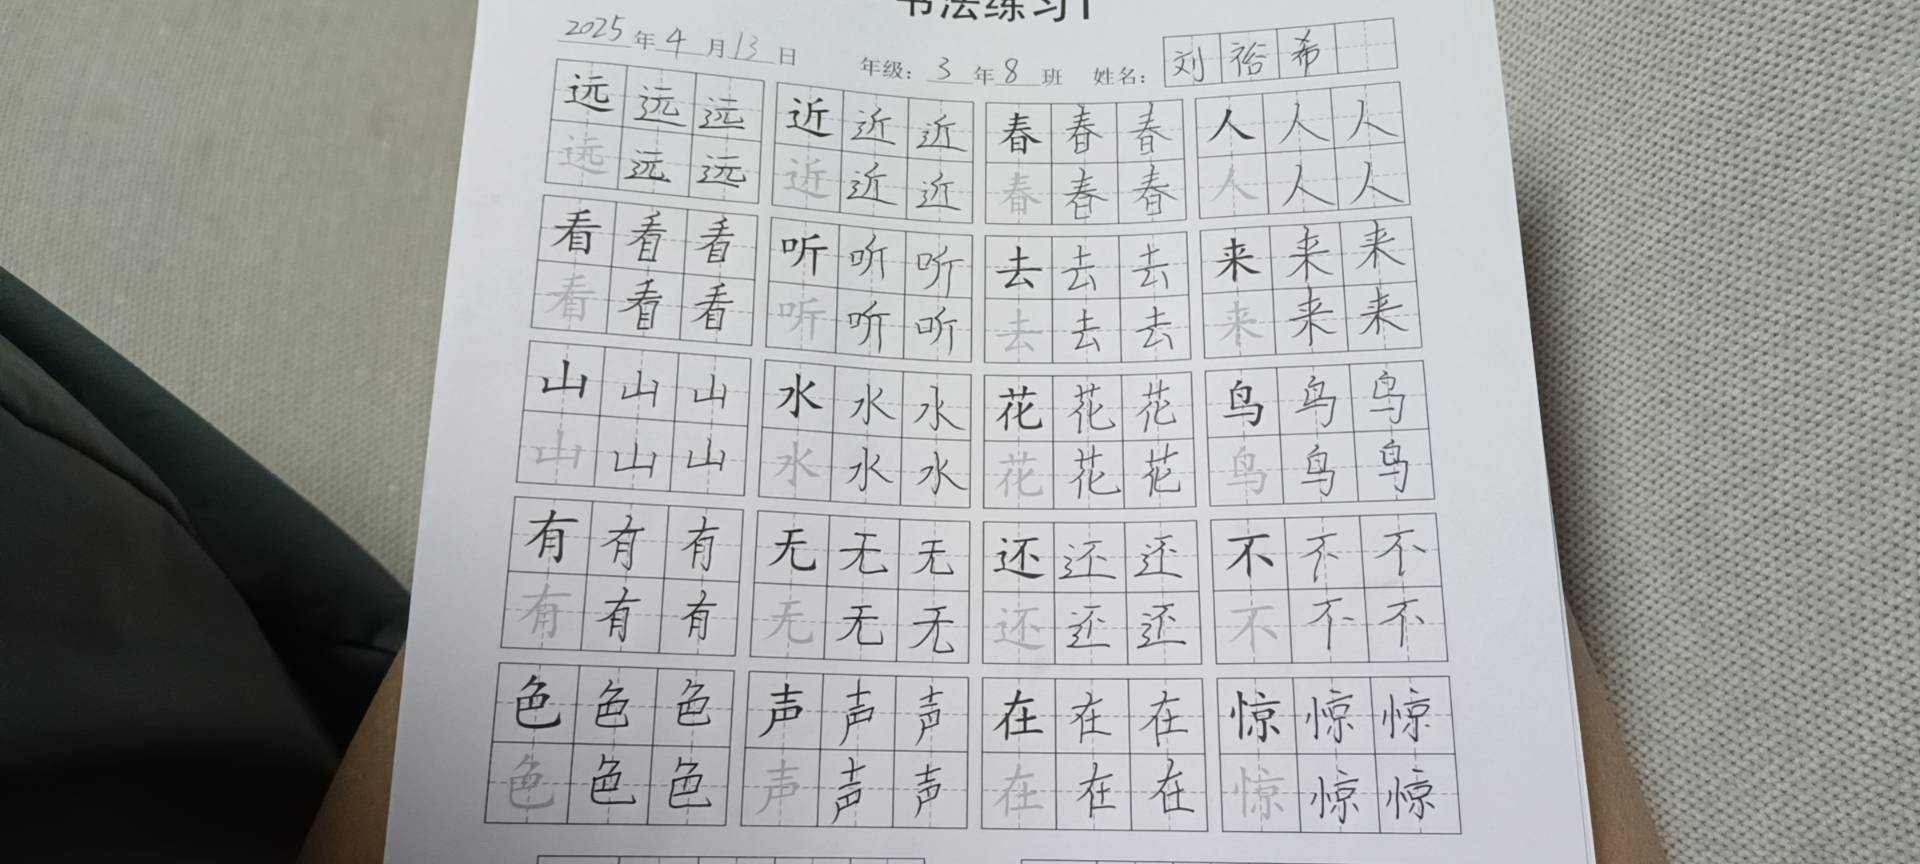 书法练习1
2025年4月13日 年级：3年8班 姓名：刘裕希
远远远 近近近 春春春 人人人
远远远 近近近 春春春 人人人
看看看 听听听 去去去 来来来
看看看 听听听 去去去 来来来
山山山 水水水 花花花 鸟鸟鸟
山山山 水水水 花花花 鸟鸟鸟
有有有 无无无 还还还 不不不
有有有 无无无 还还还 不不不
色色色 声声声 在在在 惊惊惊
色色色 声声声 在在在 惊惊惊